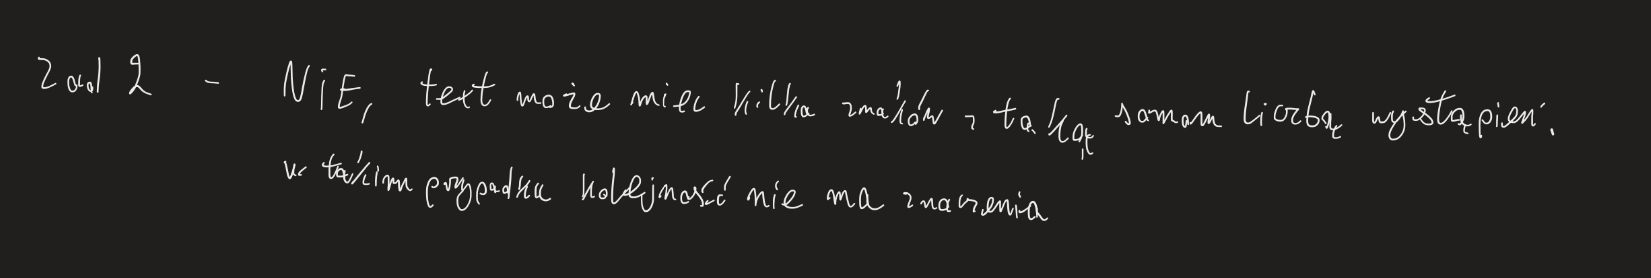 Zad 2 - NiE, text może mieć kilka znaków z taką samom liczbą wystąpień.
w takim przypadku kolejność nie ma znaczenia